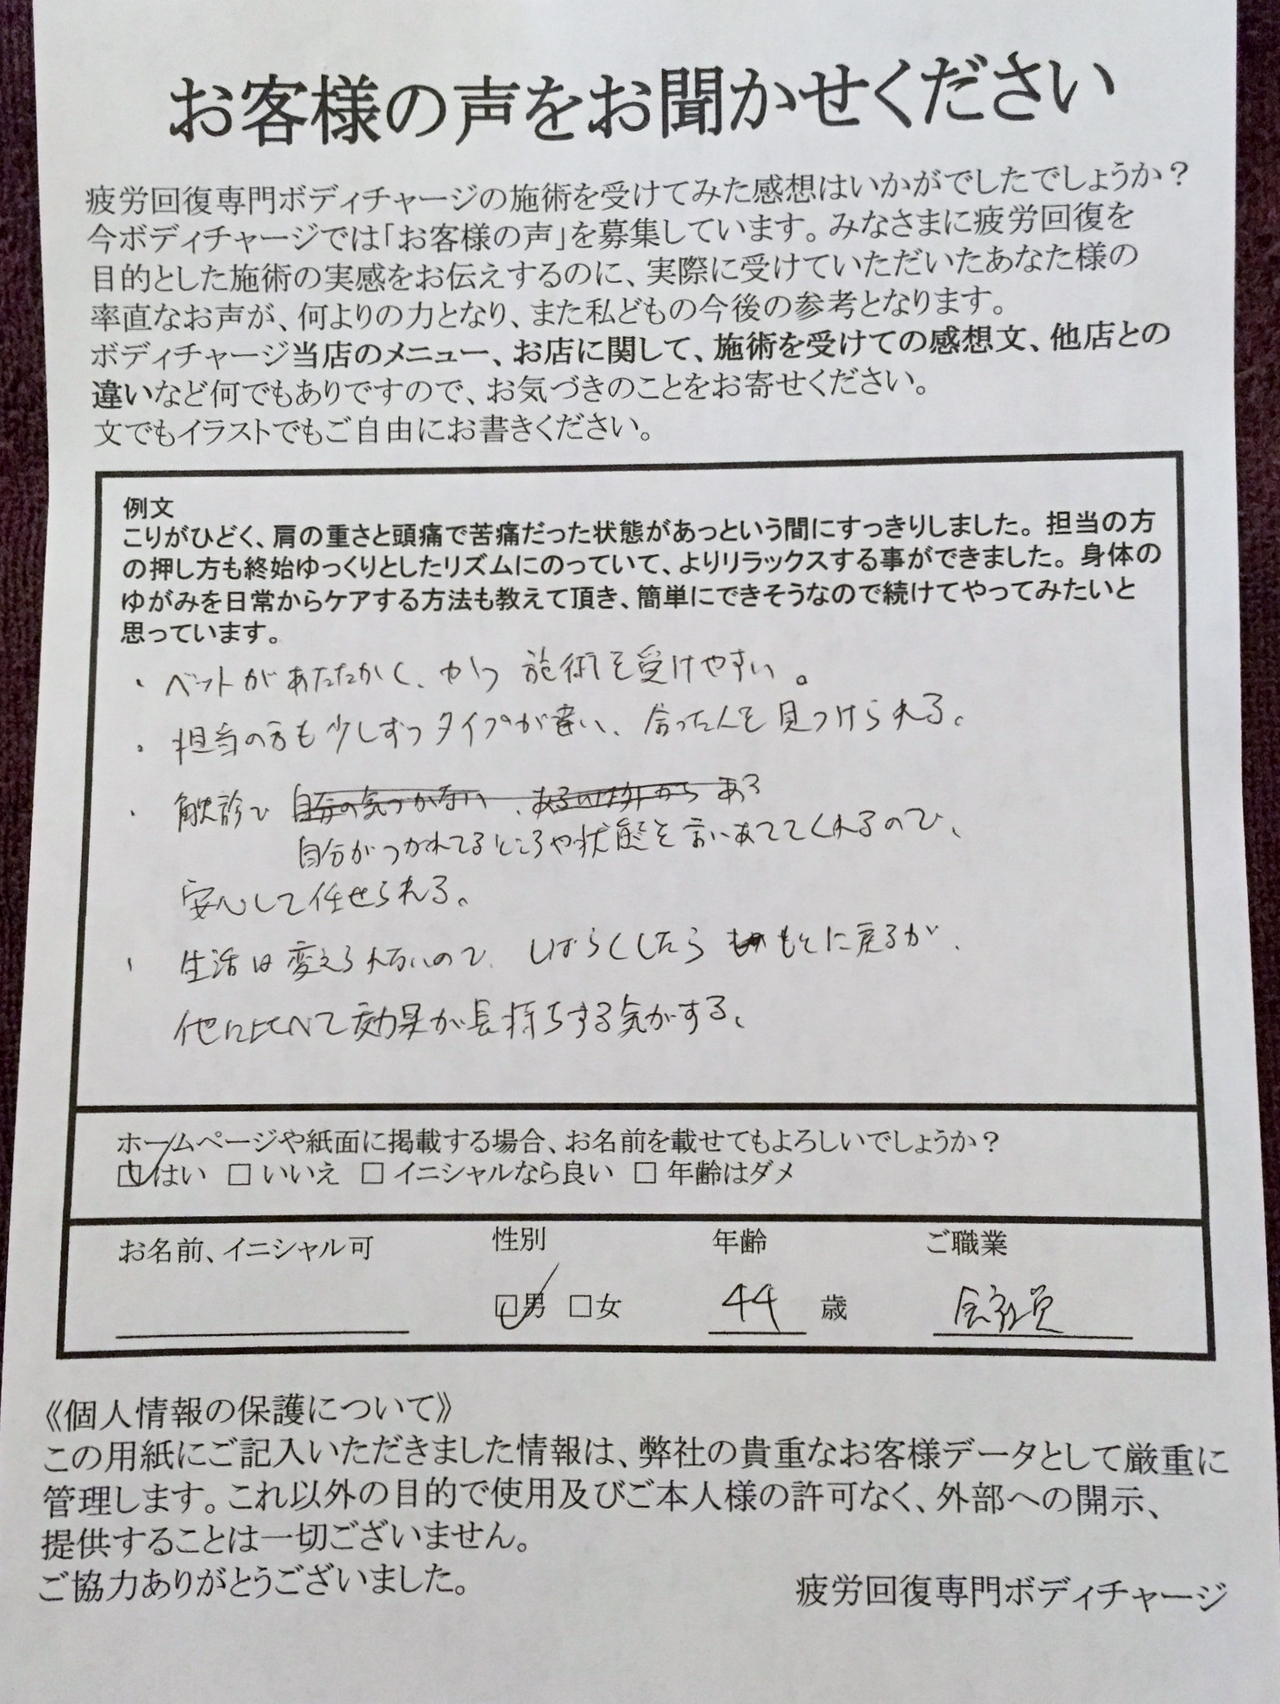 お客様の声をお聞かせください
疲労回復専門ボディチャージの施術を受けてみた感想はいかがでしたでしょうか？
今ボディチャージでは「お客様の声」を募集しています。みなさまに疲労回復を
目的とした施術の実感をお伝えするのに、実際に受けていただいたあなた様の
率直なお声が、何よりの力となり、また私どもの今後の参考となります。
ボディチャージ当店のメニュー、お店に関して、施術を受けての感想文、他店との
違いなど何でもありですので、お気づきのことをお寄せください。
文でもイラストでもご自由にお書きください。
例文
こりがひどく、肩の重さと頭痛で苦痛だった状態があっという間にすっきりしました。担当の方
の押し方も終始ゆっくりとしたリズムにのっていて、よりリラックスする事ができました。身体の
ゆがみを日常からケアする方法も教えて頂き、簡単にできそうなので続けてやってみたいと
思っています。
・ベットがあたたかく、かつ 施術を受けやすい。
・担当の方も少しずつタイプが違い、合った人を見つけられる。
・触診で 自分の気づかない、
自分がつかれてるところや状態を言いあててくれるので、
安心して任せられる。
・生活は変えられないので、しばらくしたら もとに戻るが、
他に比べて効果が長持ちする気がする、
ホームページや紙面に掲載する場合、お名前を載せてもよろしいでしょうか？
□はい □いいえ □イニシャルなら良い □年齢はダメ
お名前、イニシャル可 性別 年齢 ご職業
□男 □女 44 歳 会社員
《個人情報の保護について》
この用紙にご記入いただきました情報は、弊社の貴重なお客様データとして厳重に
管理します。これ以外の目的で使用及びご本人様の許可なく、外部への開示、
提供することは一切ございません。
ご協力ありがとうございました。
疲労回復専門ボディチャージ